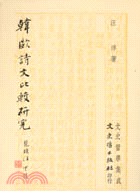 汪淳著
文史哲學集成
文史哲出版社印行
韓歐詩文比較研究